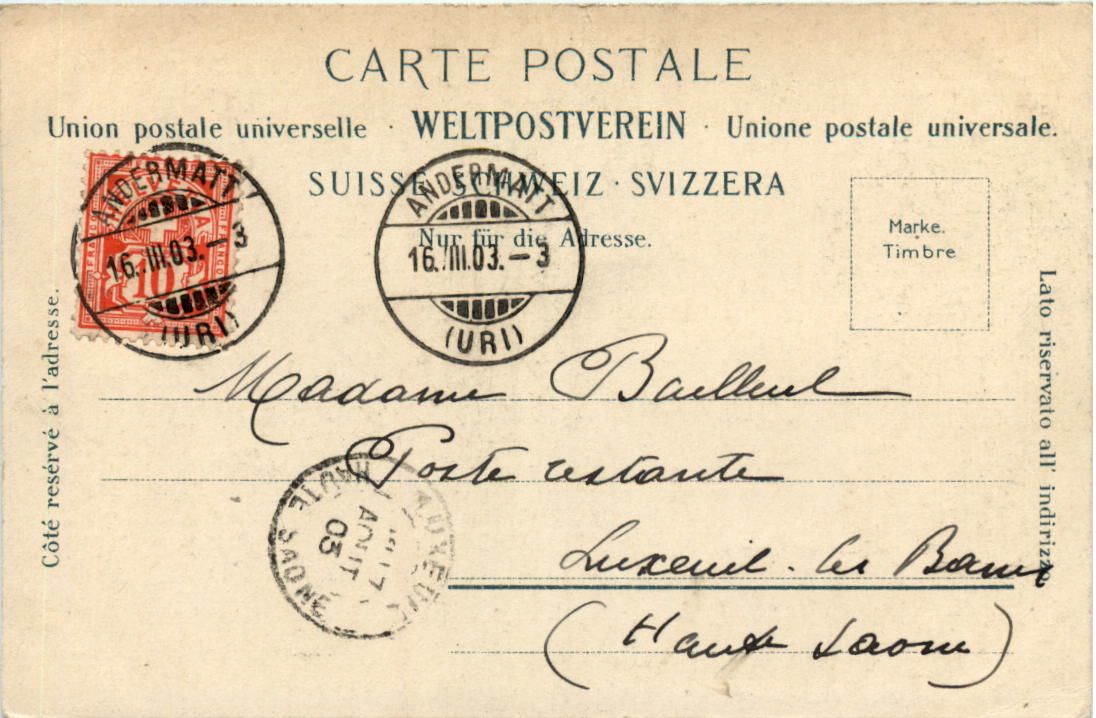 CARTE POSTALE
Union postale universelle · WELTPOSTVEREIN · Unione postale universale.
SUISSE · SCHWEIZ · SVIZZERA
Nur für die Adresse.
Marke.
Timbre
Côté resérvé à l'adresse.
Lato riservato all' indirizzo.
FRANCO
10
ANDERMATT
16.III.03.-3
(URI)
ANDERMATT
16.III.03.-3
(URI)
Madame Bailleul
Poste restante
Luxeuil-les Bains
(Haute Saône)
LUXEUIL
17
AOUT
03
HAUTE SAONE